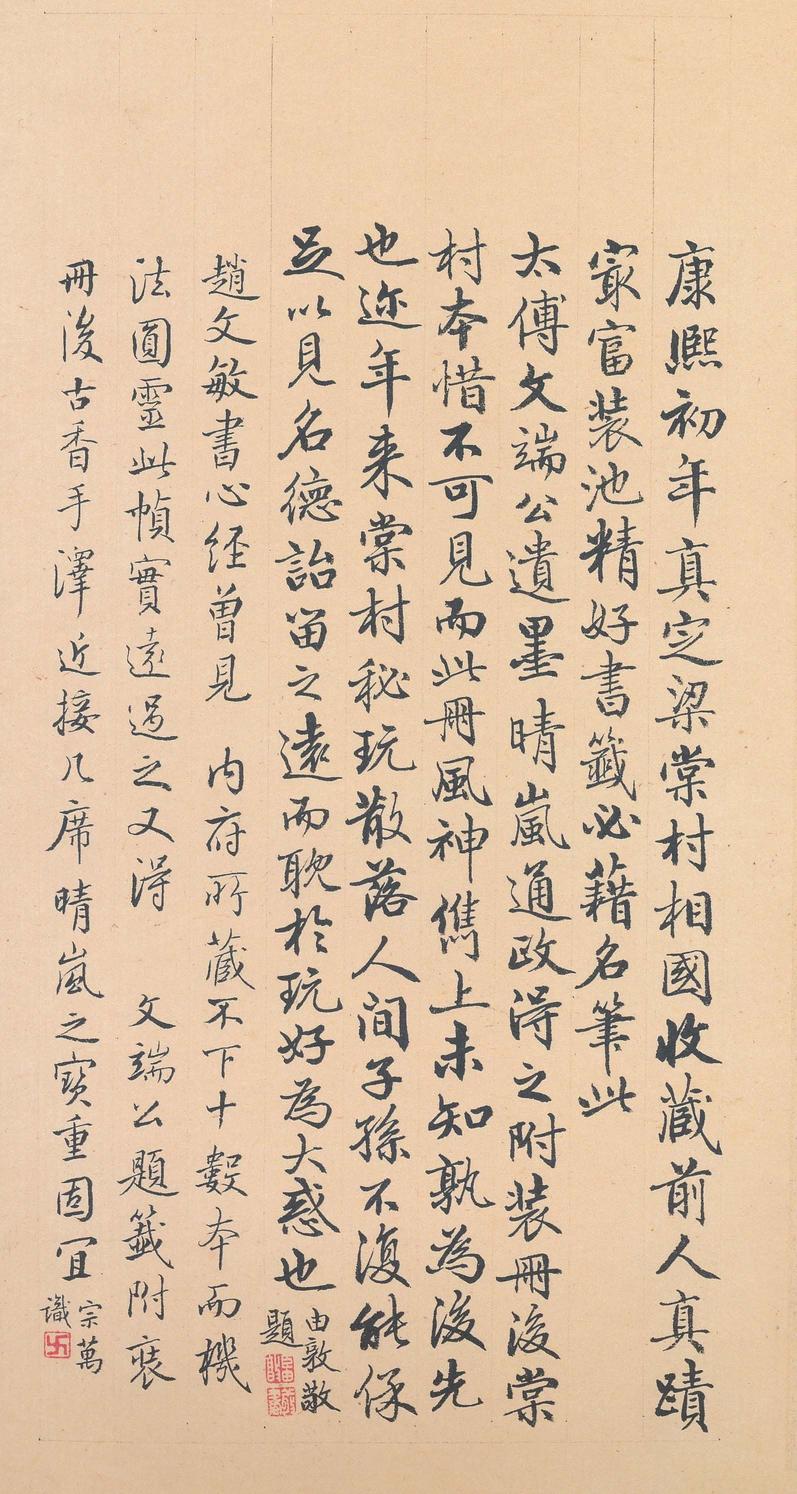 康熙初年真定梁棠村相國收藏前人真蹟
寂富装池精好書籤必藉名筆此
太傅文端公遺墨晴嵐通政淂之附装冊後棠
村本惜不可見而此冊風神儁上未知孰為後先
也迩年来棠村秘玩散落人間子孫不復能保
足以見名德詒留之遠而耽於玩好為大惑也
由敦敬
題
趙文敏書心经曾見 内府所藏不下十數本而機
法圓靈此幀實遠過之又淂 文端公題籤附裝
冊後古香手澤近接几席晴嵐之寶重固宜
宗萬
識
卍